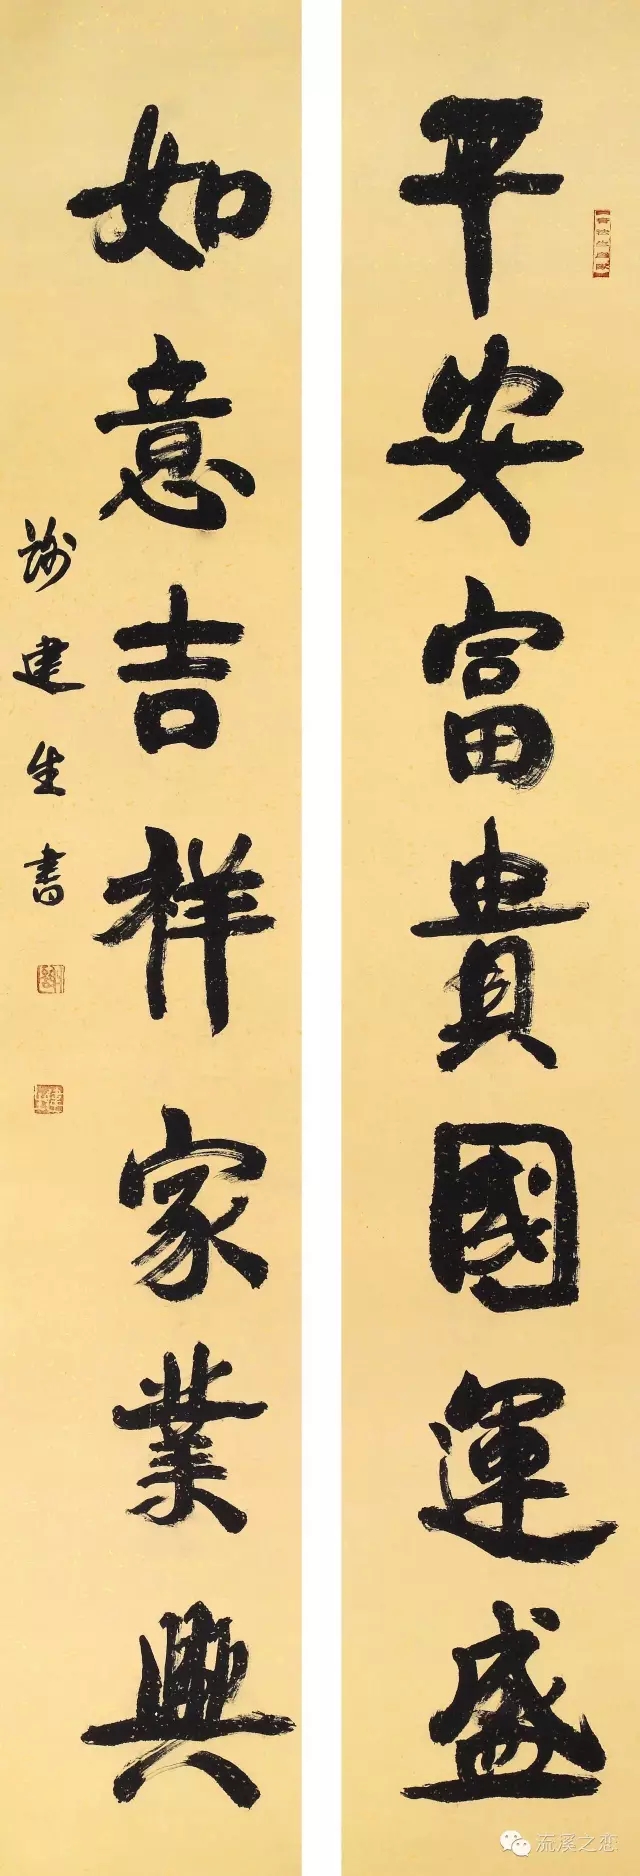 平安富貴國運盛
如意吉祥家業興
謝建生書
流溪之恋